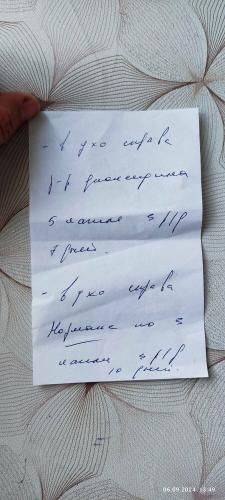 - в ухо справа
р-р диоксидина
5 капель 3 р/д
7 дней.
- в ухо справа
Нормакс по 5
капель 3 р/д
10 дней.
06.09.2024 13:49